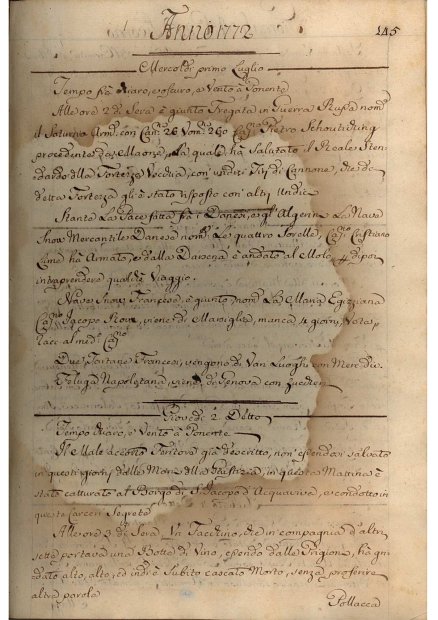 Anno 1772
145
Mercoldì primo Luglio
Tempo frà chiaro, e oscuro, e Vento à Ponente
Alle ore 2 di Sera è giunto Fregata in Guerra Russa nomᵗᵃ
il Saturno Armᵗᵃ con Canⁿⁱ 26 Vomⁿⁱ 260 Capⁿᵒ Pietro
procedente da Maone, la quale hà Salutato il Reale Sten
dardo della Fortezza Vecchia, con undici Tiri di Cannone, che da
detta Fortezza gli è stato risposto con altri Undici
Stante la Pace fatta frà i Danesi, e gl' Algerini La Nave
Snow Mercantile Danese nomᵗᵃ Le quattro Sorelle, Capⁿᵒ Cristiano
hà Armato, e dalla Darsena è andato al Molo p. dipoi
intraprendere qualche Viaggio.
Nave Snow Francese, è giunto, nomᵗᵃ La Maria Egiziana
Capⁿᵒ Jacopo viene di Marsiglia, manca 4 giorni,
al med. Capⁿᵒ
Due Tartane Francesi, vengono di Vari Luoghi con Mercanzie
Feluga Napoletana, viene di Genova con
Giovedì 2 Detto
Tempo chiaro, e Vento à Ponente
Il reale accorto Feritore già descritto, non essendosi salvato
in questi giorni dalle Mani della Giustizia, in questa Mattina è
stato catturato al Borgo di S. Jacopo d'Acquaviva, e condotto in
queste Carceri Segrete
Alle ore 3 di Sera Un Facchino, che in compagnia d'altri
sette portava una Botte di Vino, essendo dalle Prigioni, hà gri
dato alto, alto, ed indi è Subito cascato Morto, senza proferire
altre parole
Pollacca